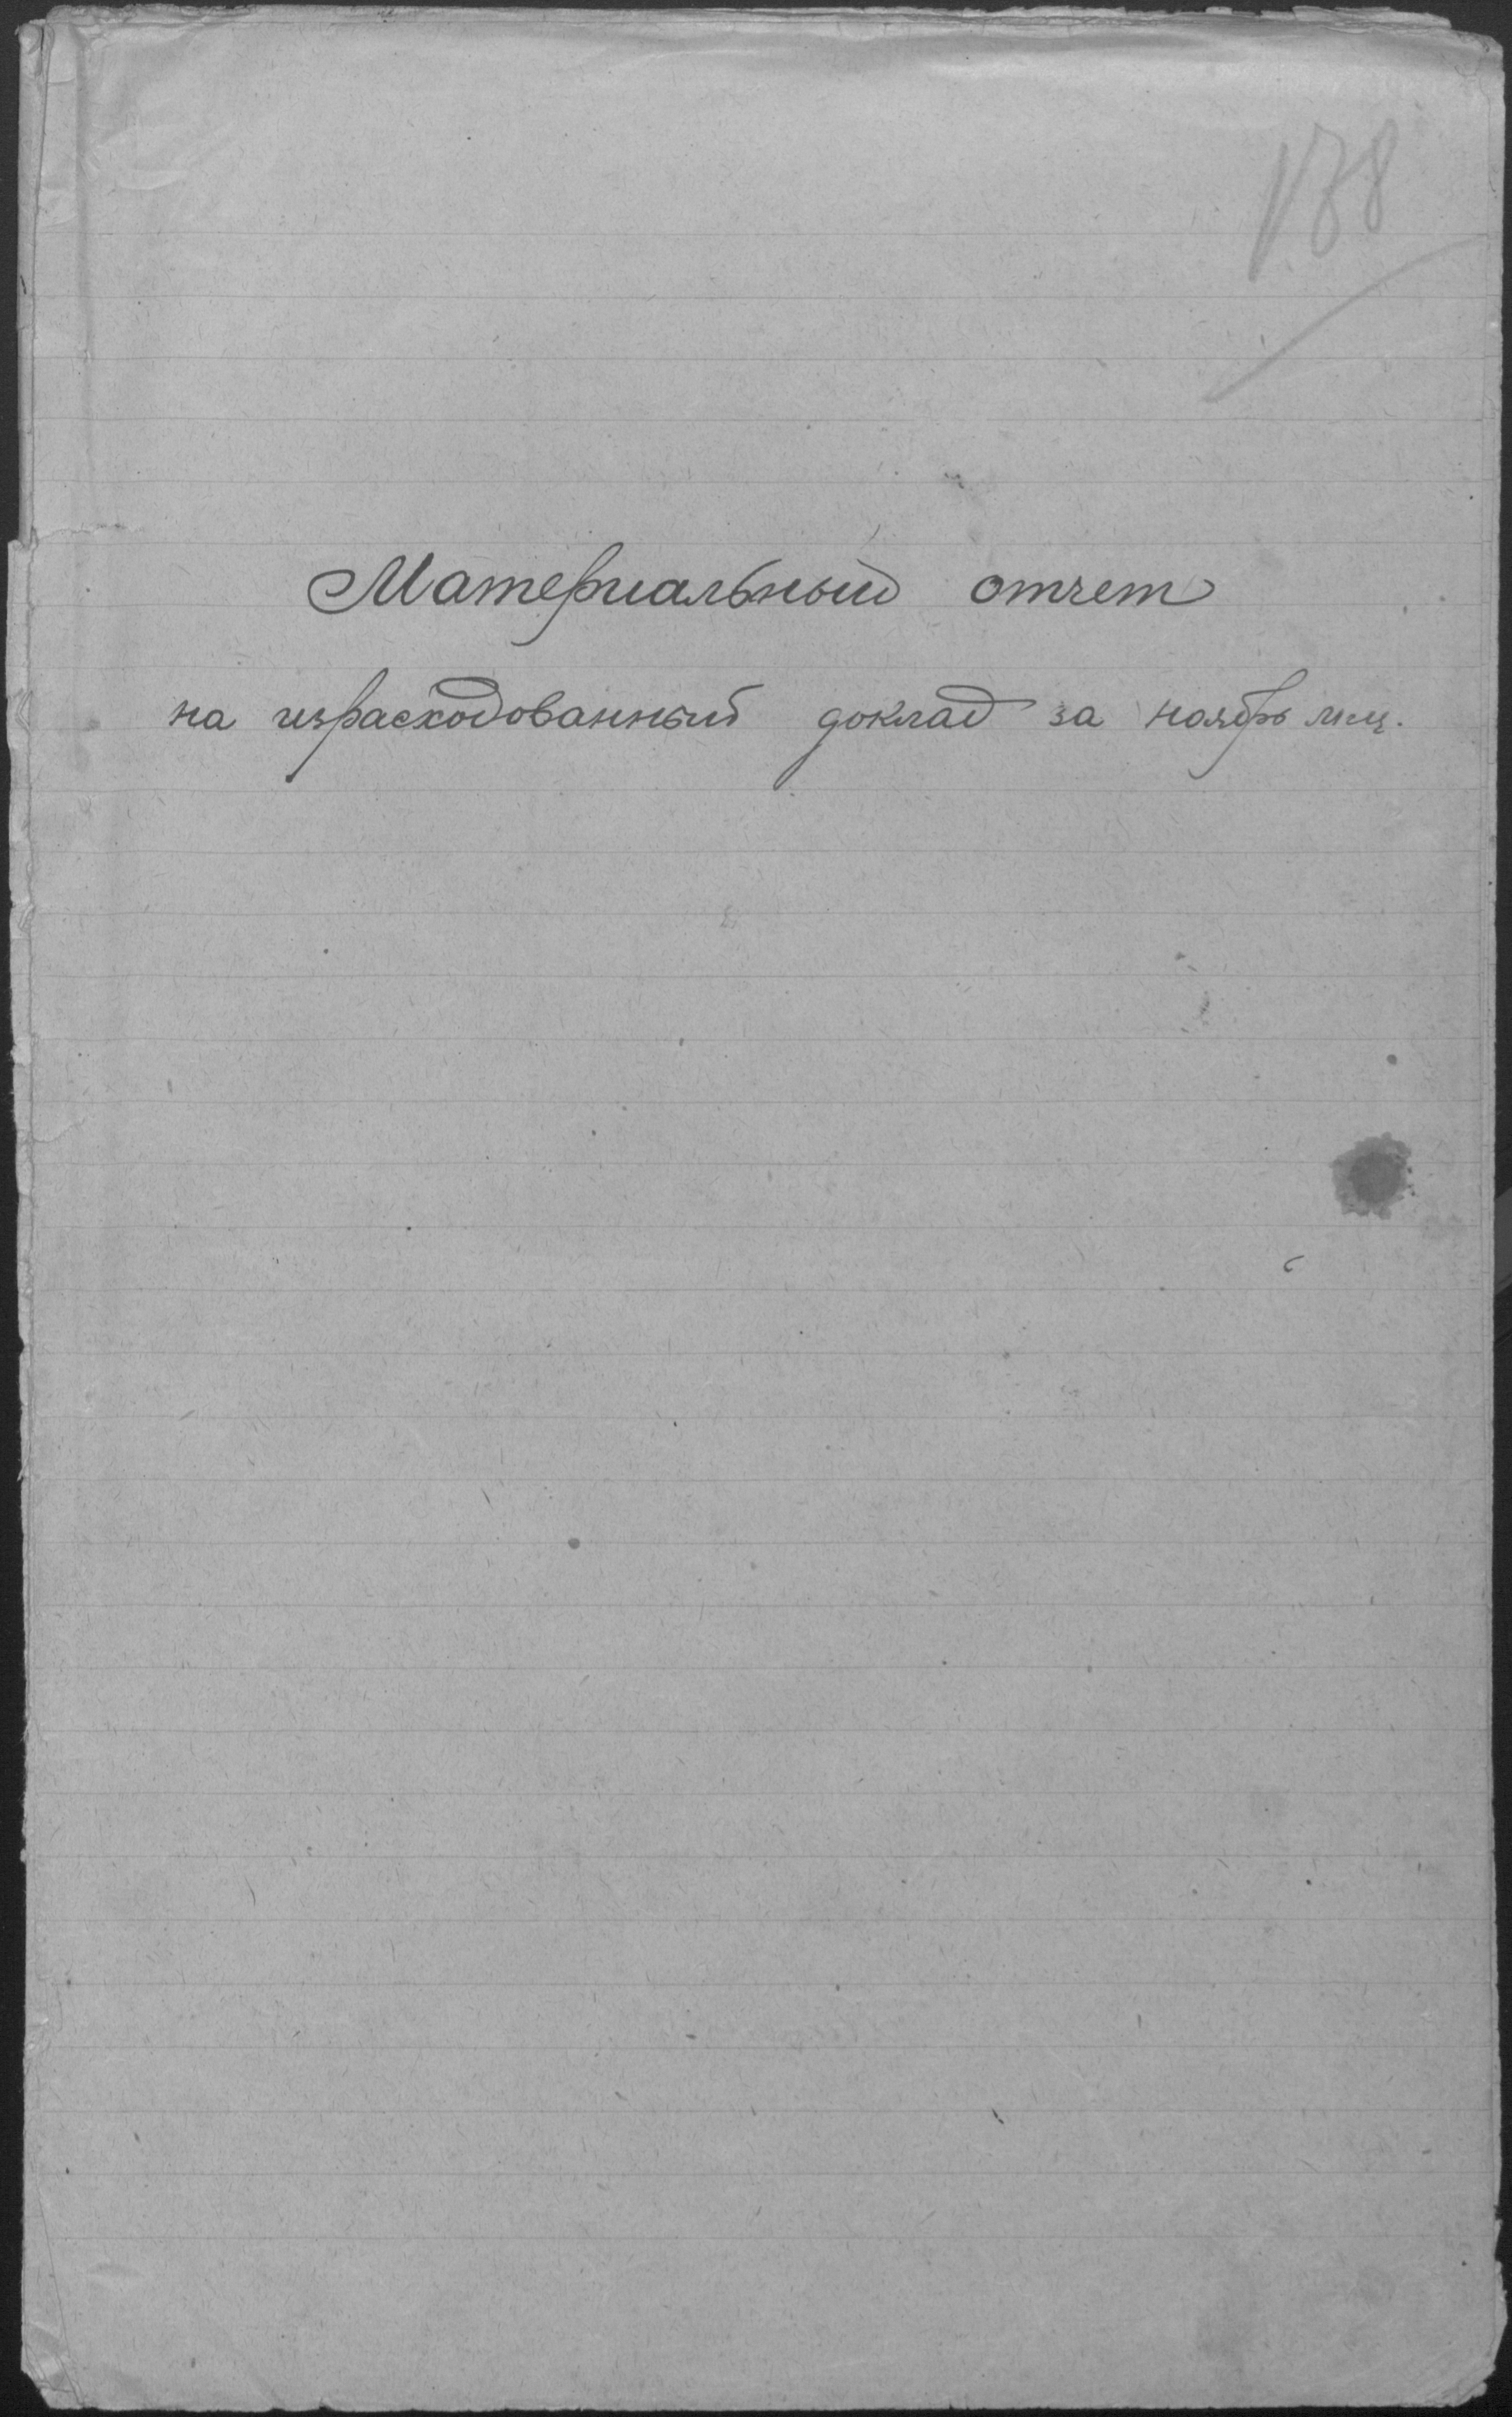 138
Материальный отчет
на израсходованный доклад за ноябрь мц.